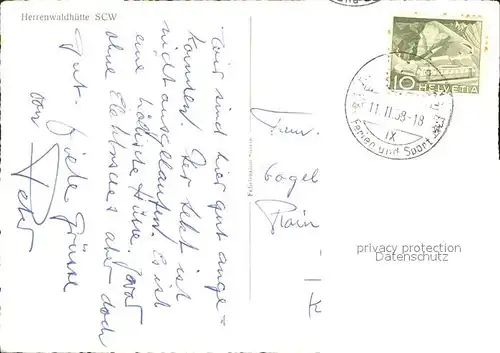 Herrenwaldhütte SCW
Wir sind hier gut ange=
kommen. Der Sekt ist
nicht ausgelaufen. Es ist
eine hübsche Hütte. Zwar
ohne Elektrisches aber doch
gut. Viele Grüsse
vom Peter
10 HELVETIA
11.II.58-18
IX
Ferien und Sport
Fam.
Gogel
Rain
privacy protection
Datenschutz